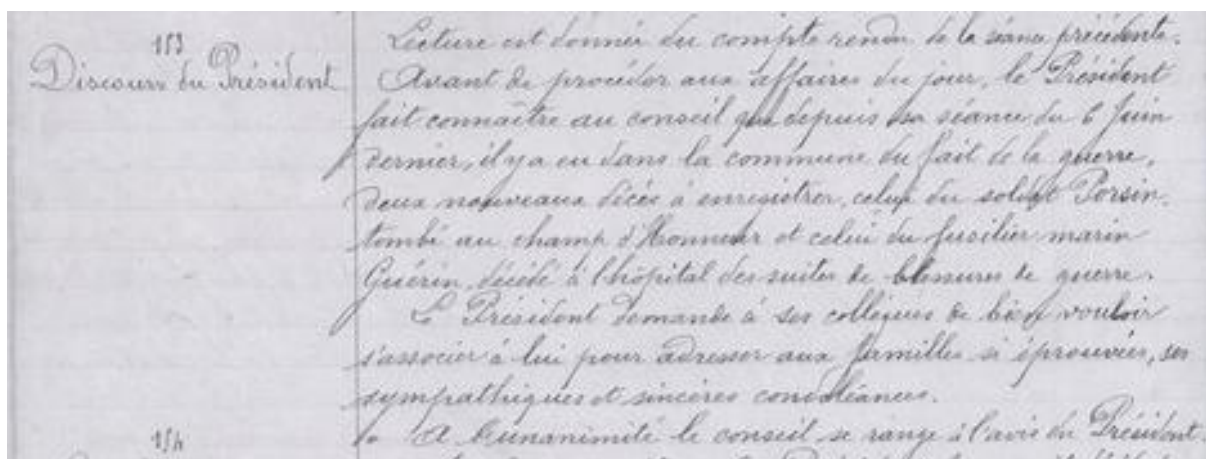 153
Discours du Président
Lecture est donnée du compte rendu de la séance précédente.
Avant de procéder aux affaires du jour, le Président
fait connaître au conseil que depuis sa séance du 6 Juin
dernier, il y a eu dans la commune du fait de la guerre,
deux nouveaux décès à enregistrer, celui du soldat Porsin,
tombé au champ d'Honneur et celui du fusilier marin
Guérin, décédé à l'hôpital des suites de blessures de guerre.
Le Président demande à ses collègues de bien vouloir
s'associer à lui pour adresser aux familles si éprouvées, ses
sympathiques et sincères condoléances.
154
A l'unanimité le conseil se range à l'avis du Président.